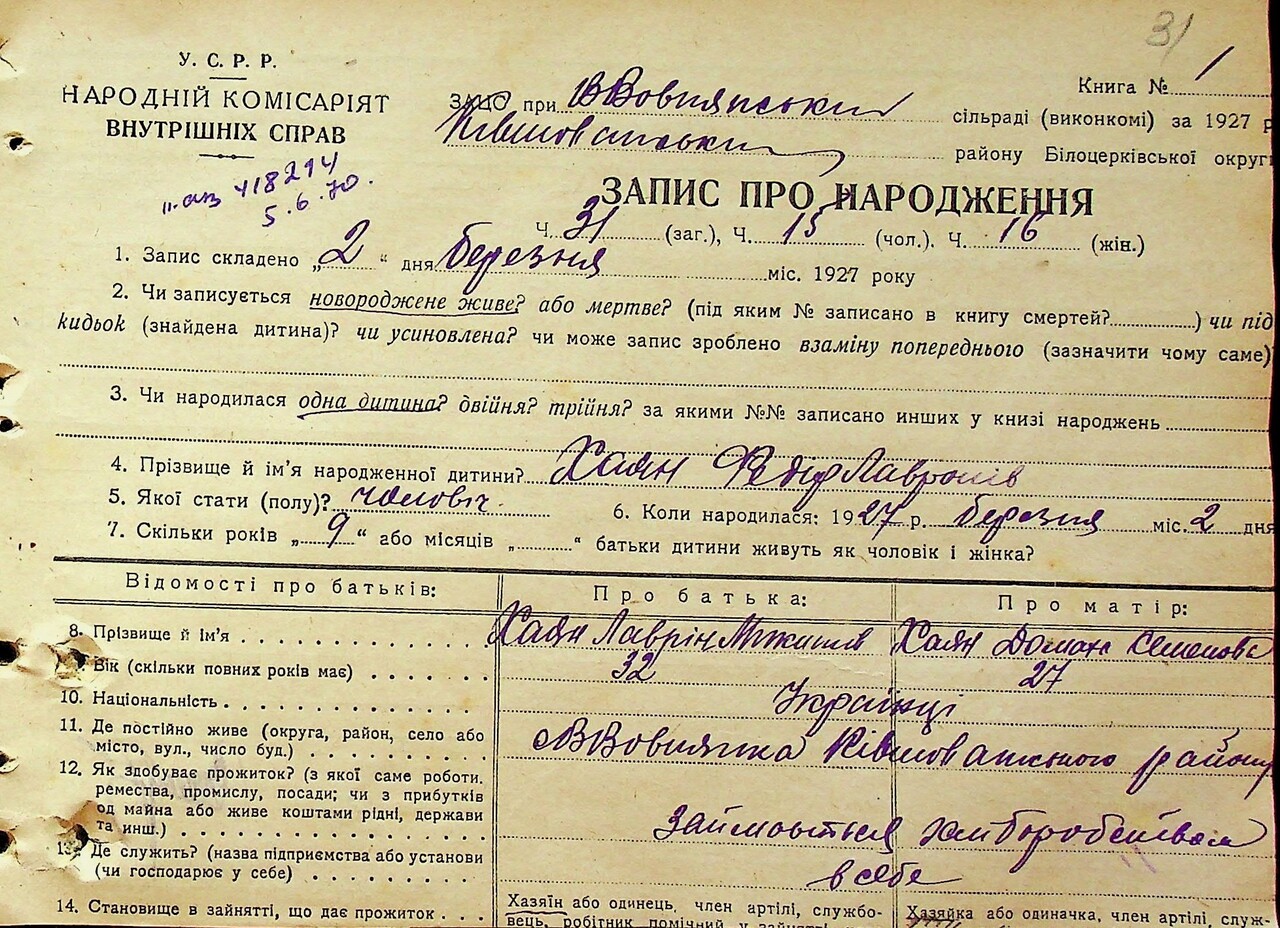 31
У. С. Р. Р.
НАРОДНІЙ КОМІСАРІЯТ
ВНУТРІШНІХ СПРАВ
418294
5.6.70.
Книга № 1
ЗАПС при ВВовнянський сільраді (виконкомі) за 1927 р
Ківшоватський району Білоцерківської округи
ЗАПИС ПРО НАРОДЖЕННЯ
Ч. 31 (заг.), Ч. 15 (чол.). Ч. 16 (жін.)
1. Запис складено „2“ дня березня міс. 1927 року
2. Чи записується новороджене живе? або мертве? (під яким № записано в книгу смертей? ) чи під
кидьок (знайдена дитина)? чи усиновлена? чи може запис зроблено взаміну попереднього (зазначити чому саме)
3. Чи народилася одна дитина? двійня? трійня? за якими №№ записано инших у книзі народжень
4. Прізвище й ім’я народженної дитини? Хаян Федір Лаврінів
5. Якої стати (полу)? чоловіч. 6. Коли народилася: 1927 р. березня міс. 2 дня
7. Скільки років „9“ або місяців „ “ батьки дитини живуть як чоловік і жінка?
Відомості про батьків: Про батька: Про матір:
8. Прізвище й ім’я Хаян Лаврін Хаян Домаха Семенова
9. Вік (скільки повних років має) 32 27
10. Національність Українці
11. Де постійно живе (округа, район, село або
місто, вул., число буд.) с ВВовнянка Ківшоватського району
12. Як здобуває прожиток? (з якої саме роботи.
ремества, промислу, посади; чи з прибутків
од майна або живе коштами рідні, держави
та инш.) Займається хліборобством
13. Де служить? (назва підприємства або установи
(чи господарює у себе) в себе
14. Становище в зайнятті, що дає прожиток
Хазяїн або одинець, член артілі, службо-
вець, робітник помічний у зайнятті
Хазяйка або одиначка, член артілі, служ-